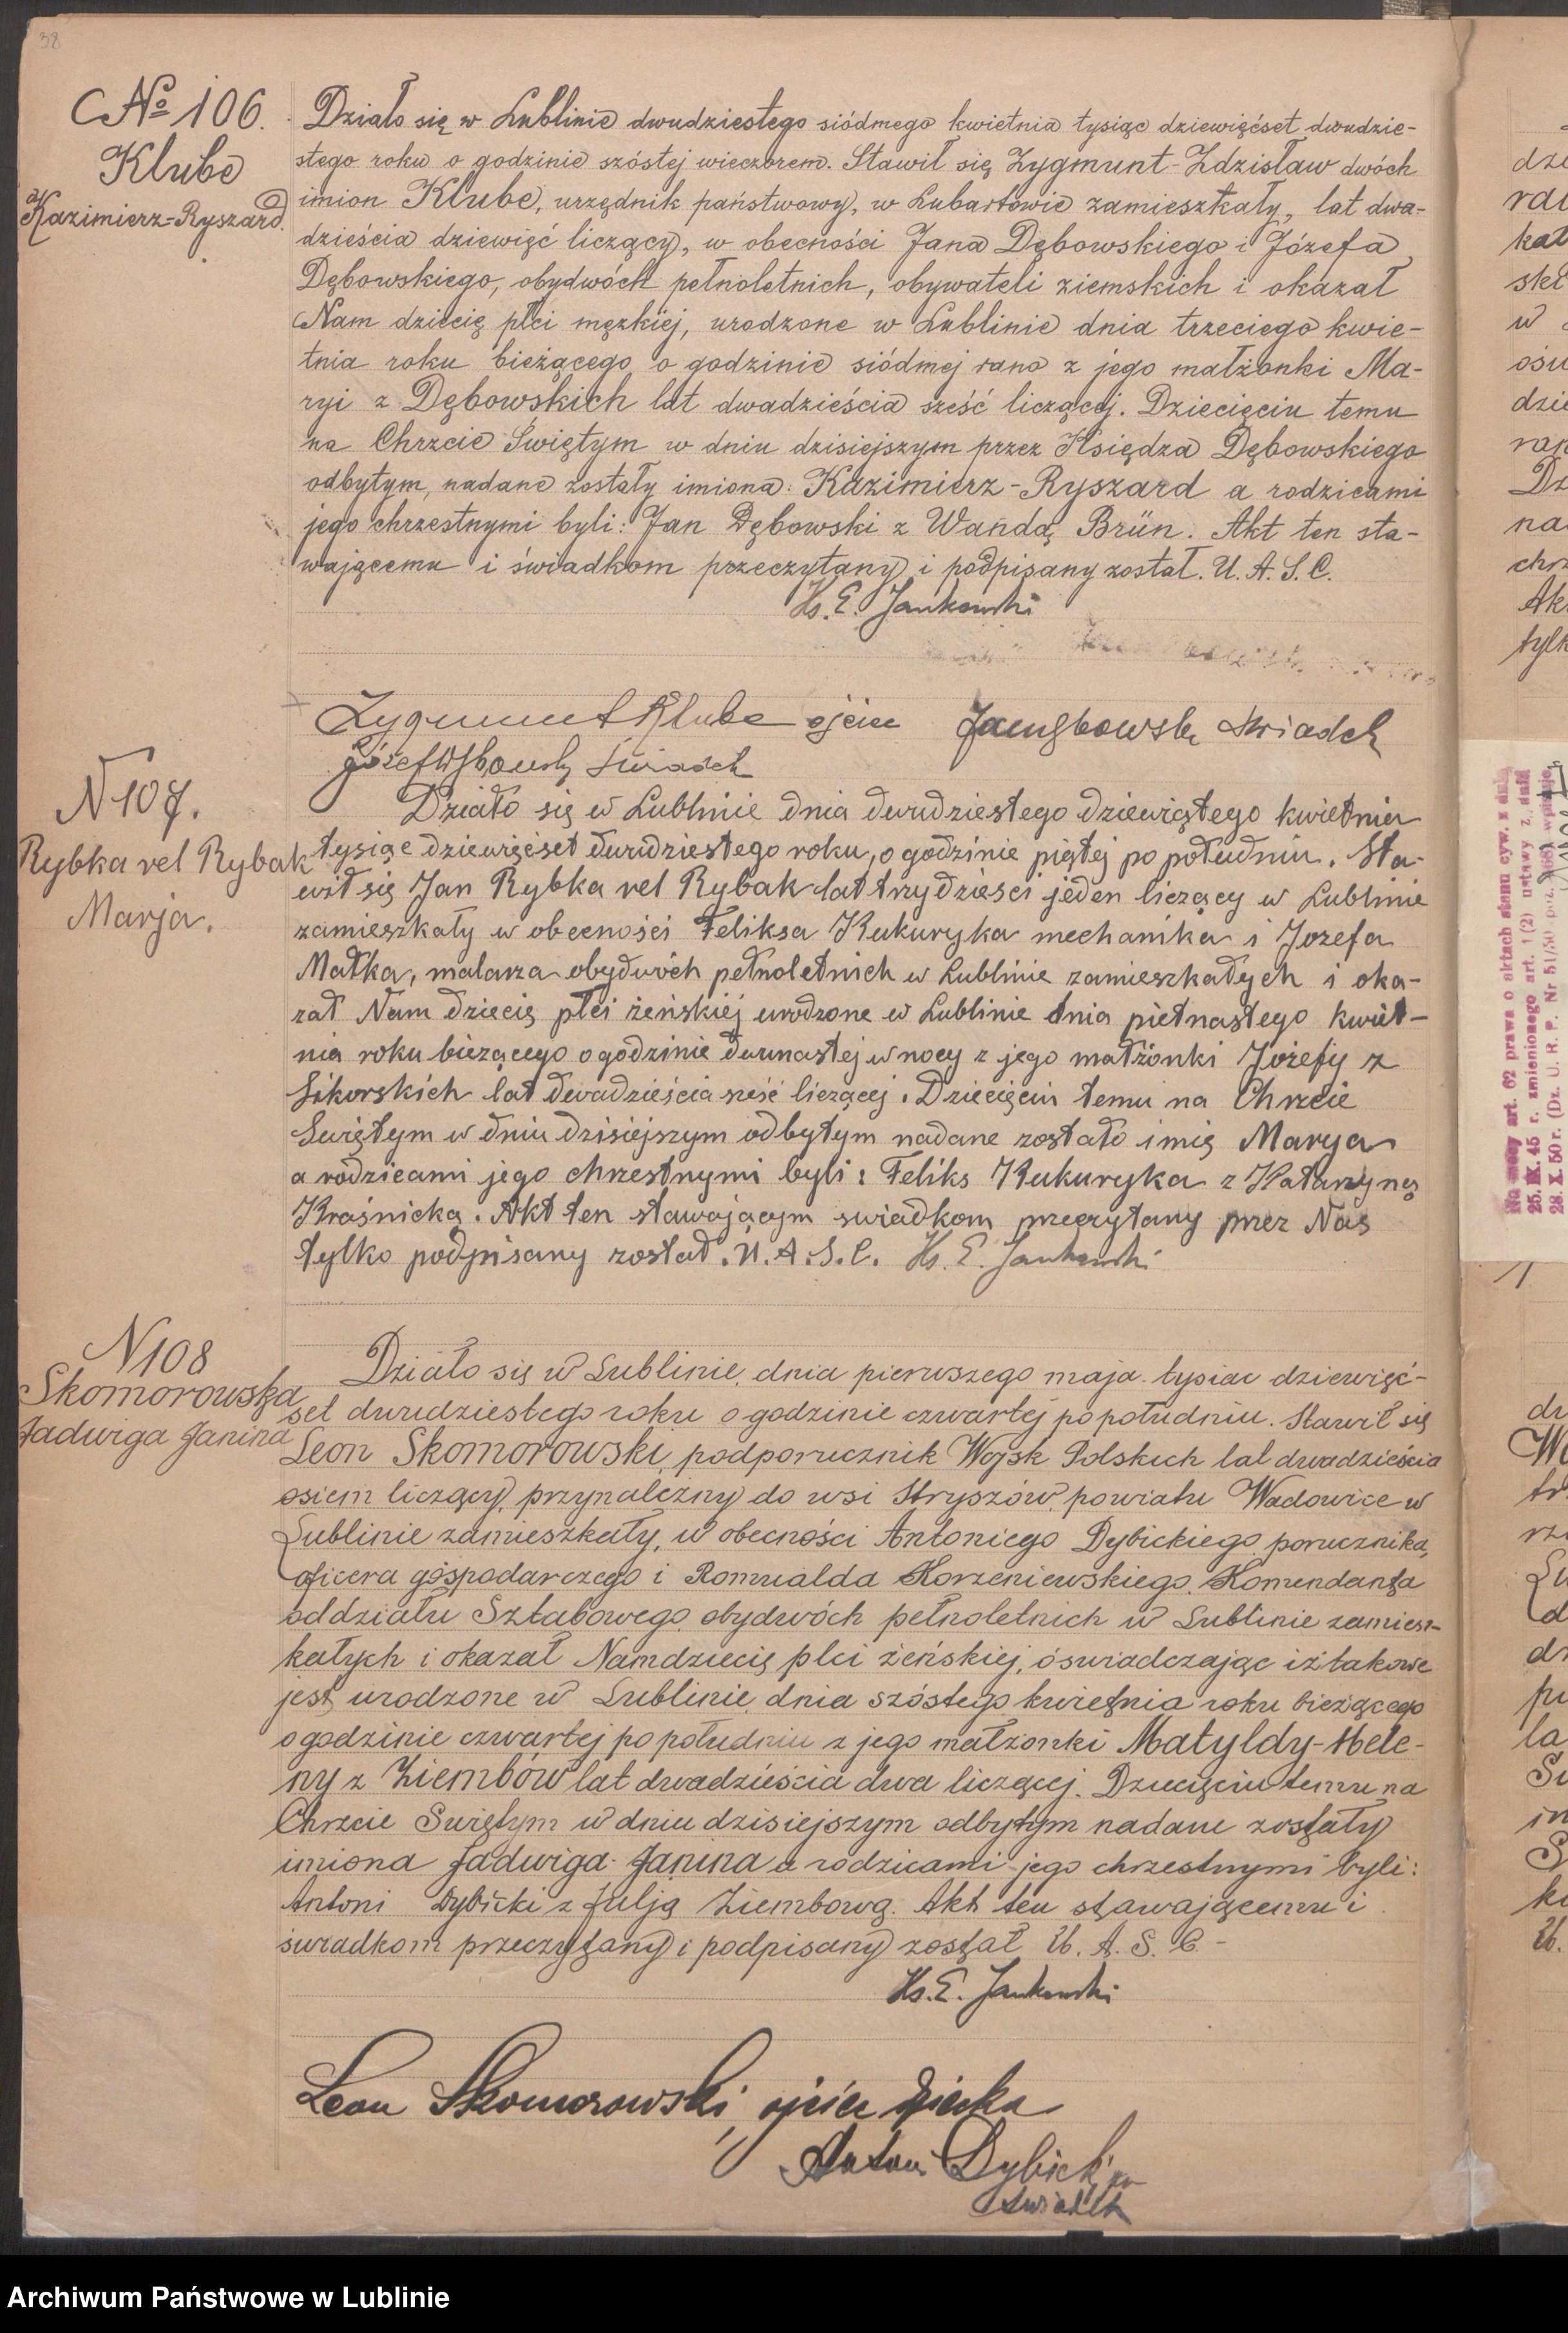 38
№ 106.
Klube
Kazimierz=Ryszard.
Działo się w Lublinie dwudziestego siódmego kwietnia tysiąc dziewięćset dwudzie-
stego roku o godzinie szóstej wieczorem. Stawił się Zygmunt-Zdzisław dwóch
imion Klube, urzędnik państwowy, w Lubartowie zamieszkały, lat dwa-
dzieścia dziewięć liczący, w obecności Jana Dębowskiego i Józefa
Dębowskiego, obydwóch pełnoletnich, obywateli ziemskich i okazał
Nam dziecię płci męzkiej, urodzone w Lublinie dnia trzeciego kwie-
tnia roku bieżącego o godzinie siódmej rano z jego małżonki Ma-
ryi z Dębowskich lat dwadzieścia sześć liczącej. Dziecięciu temu
na Chrzcie Świętym w dniu dzisiejszym przez Księdza Dębowskiego
odbytym, nadane zostały imiona: Kazimierz-Ryszard a rodzicami
jego chrzestnymi byli: Jan Dębowski z Wandą Brün. Akt ten sta-
wającemu i świadkom przeczytany i podpisany został. U. A. S. C.
Ks. E. Jankowski
Zygmunt Klube ojciec Jan Dębowski świadek
Józef Dębowski świadek
N 107.
Rybka vel Rybak
Marja.
Działo się w Lublinie dnia dwudziestego dziewiątego kwietnia
tysiąc dziewięćset dwudziestego roku, o godzinie piętej po południu. Sta-
wił się Jan Rybka vel Rybak lat trzydzieści jeden liczący w Lublinie
zamieszkały w obecności Feliksa Kukuryka mechanika i Jozefa
Matka, malarza obydwóch pełnoletnich w Lublinie zamieszkałych i oka-
zał Nam dziecię płci żeńskiej urodzone w Lublinie dnia piętnastego kwiet-
nia roku bieżącego o godzinie dwunastej w nocy z jego małżonki Józefy z
Sikorskich lat dwadzieścia sześć liczącej. Dziecięciu temu na Chrzcie
Swiętym w dniu dzisiejszym odbytym nadane zostało imię Marya
a rodzicami jego chrzestnymi byli: Feliks Kukuryka z Katarzyną
Kraśnicką. Akt ten stawającym swiadkom przeczytany przez Nas
tylko podpisany został. U. A. S. C. Ks. E. Jankowski
N 108
Skomorowska
Jadwiga Janina
Działo się w Lublinie, dnia pierwszego maja tysiac dziewięć-
set dwudziestego roku o godzinie czwartej po południu. Stawił się
Leon Skomorowski, podporucznik Wojsk Polskich lat dwadzieścia
osiem liczący, przynależny do wsi Stryszów, powiatu Wadowice w
Lublinie zamieszkały, w obecności Antoniego Dybickiego porucznika,
oficera gospodarczego i Romualda Korzeniewskiego, Komendanta
oddziału Sztabowego, obydwóch pełnoletnich w Lublinie zamiesz-
kałych i okazał Nam dziecię płci żeńskiej, óswiadczając iż takowe
jest urodzone w Lublinie, dnia szóstego kwietnia roku bieżącego
o godzinie czwartej po południu z jego małżonki Matyldy-Hele-
ny z Ziembów lat dwadzieścia dwa liczącej. Dziecięciu temu na
Chrzcie Swiętym w dniu dzisiejszym odbytym nadane zostały
imiona Jadwiga-Janina a rodzicami jego chrzestnymi byli:
Antoni Dybicki z Julją Ziembową. Akt ten stawającemu i
swiadkom przeczytany i podpisany został U. A. S. C.-
Ks. E. Jankowski
Leon Skomorowski, ojciec dziecka
Antoni Dybicki
świadek
Na mocy art. 62 prawa o aktach stanu cyw. z dnia
25. IX. 45 r. zmienionego art. 1 (2) ustawy z dnia
28. X. 50 r. (Dz. U. R. P. Nr 51/50
Archiwum Państwowe w Lublinie